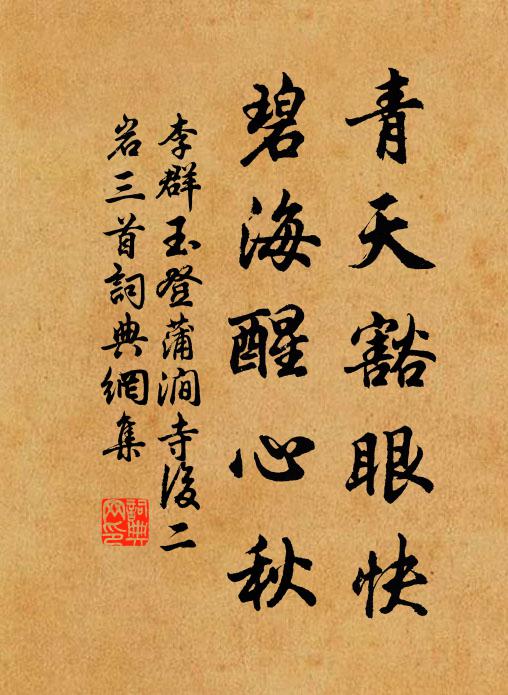 青天豁眼快
碧海醒心秋
李群玉登蒲澗寺後二
岩三首詞典網集
詞典
网印